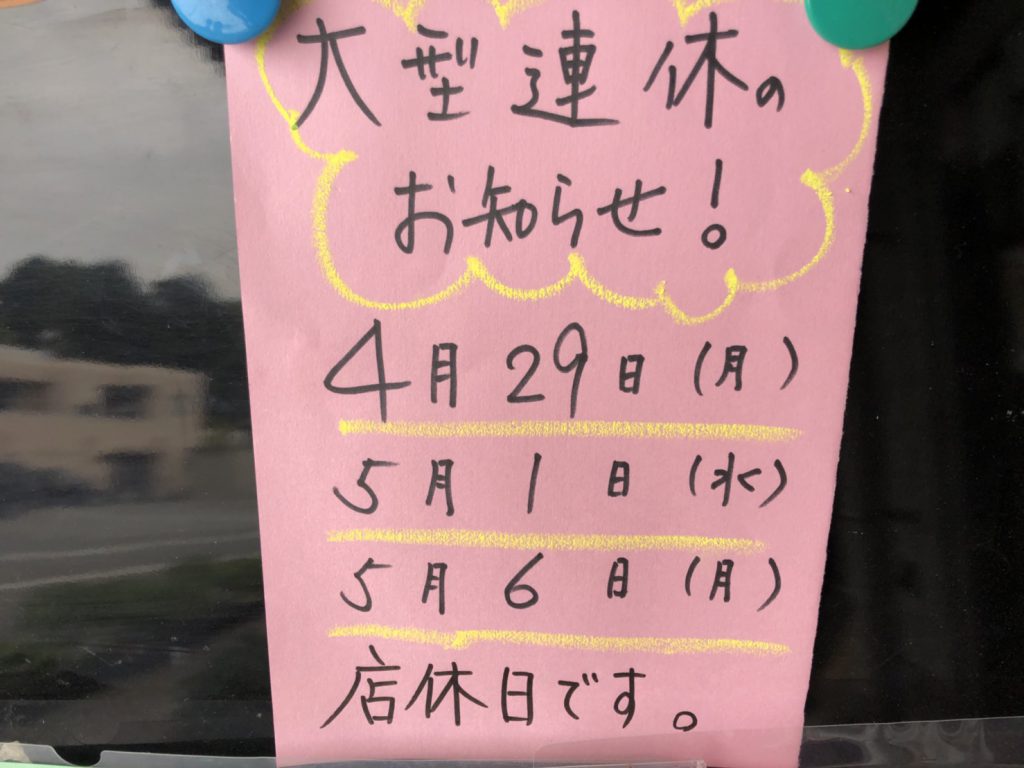 大型連休の
お知らせ!
4月29日(月)
5月1日(水)
5月6日(月)
店休日です。